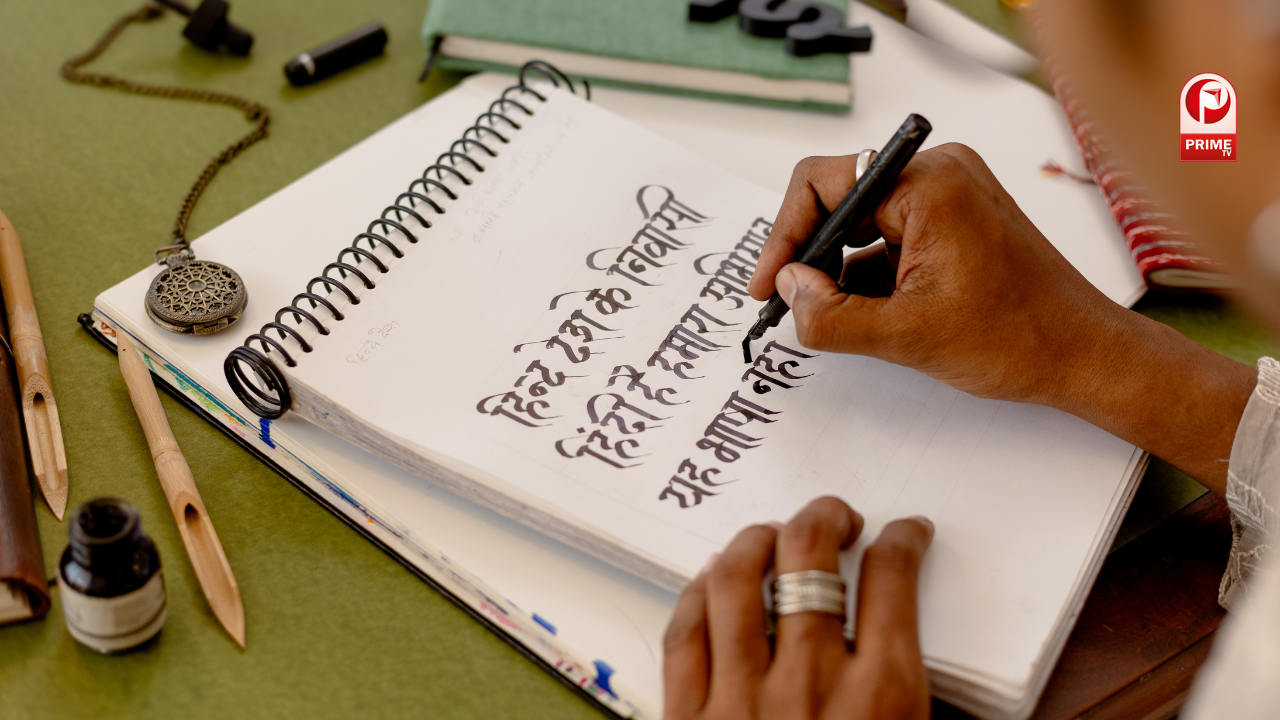 हिन्द देश के निवासी
हिंदी है हमारा अभिमान
यह भाषा नहा
PRIME
TV